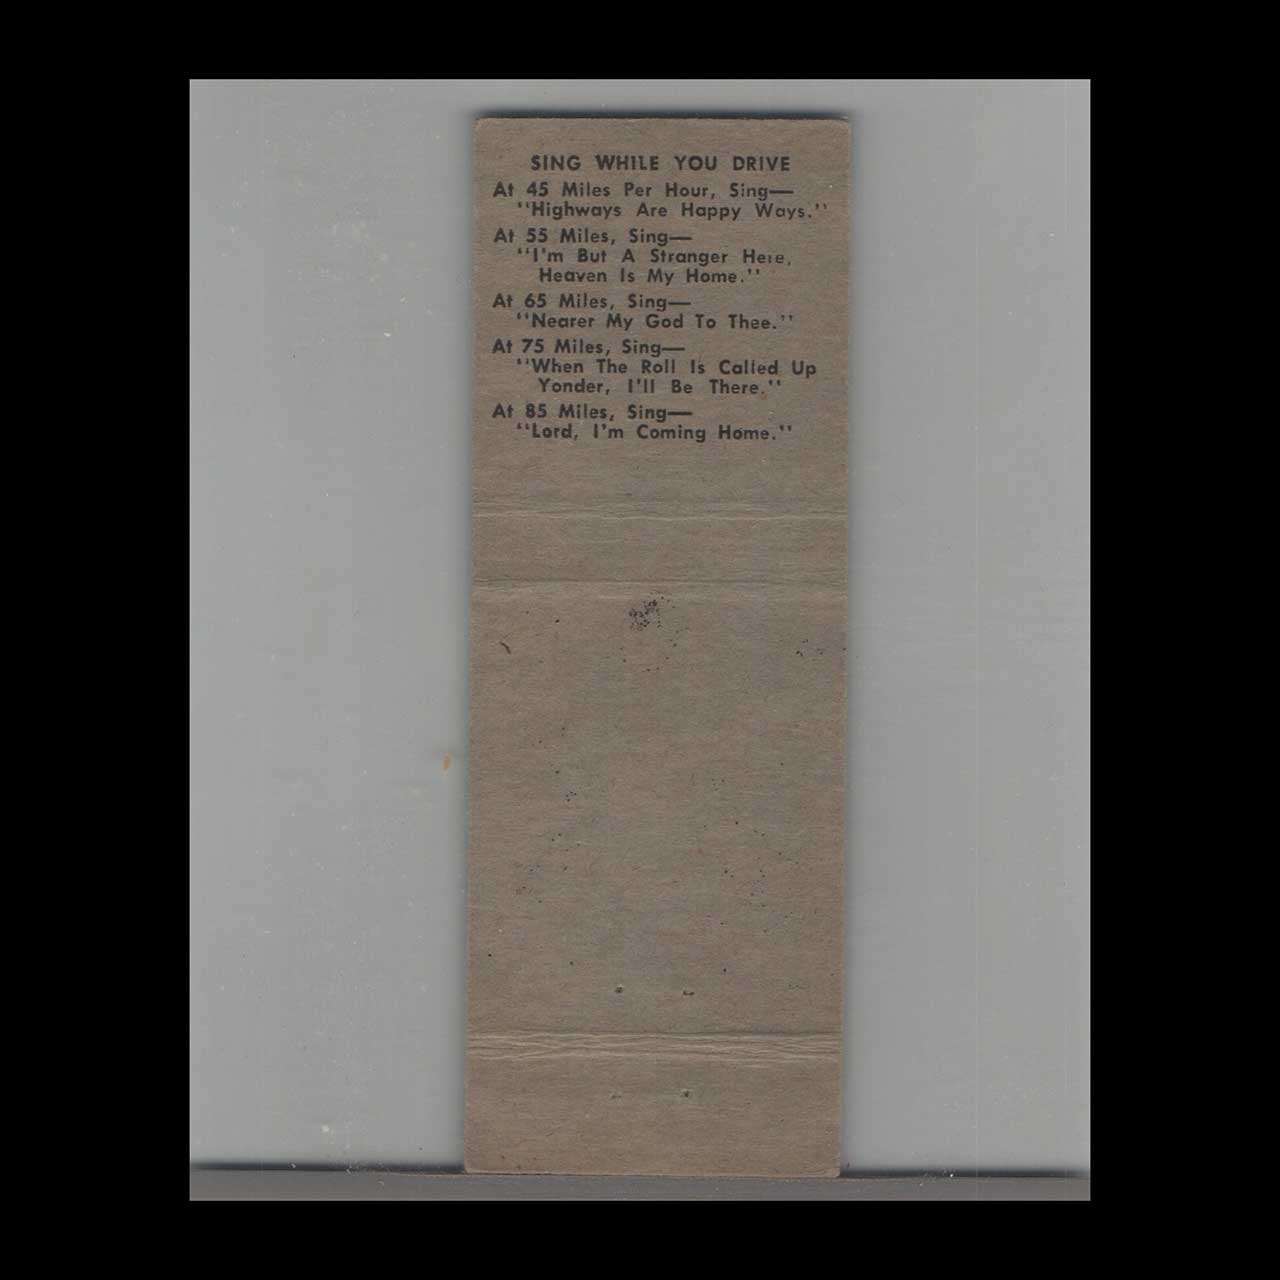 SING WHILE YOU DRIVE
At 45 Miles Per Hour, Sing—
"Highways Are Happy Ways."
At 55 Miles, Sing—
"I'm But A Stranger Here,
Heaven Is My Home."
At 65 Miles, Sing—
"Nearer My God To Thee."
At 75 Miles, Sing—
"When The Roll Is Called Up
Yonder, I'll Be There."
At 85 Miles, Sing—
"Lord, I'm Coming Home."